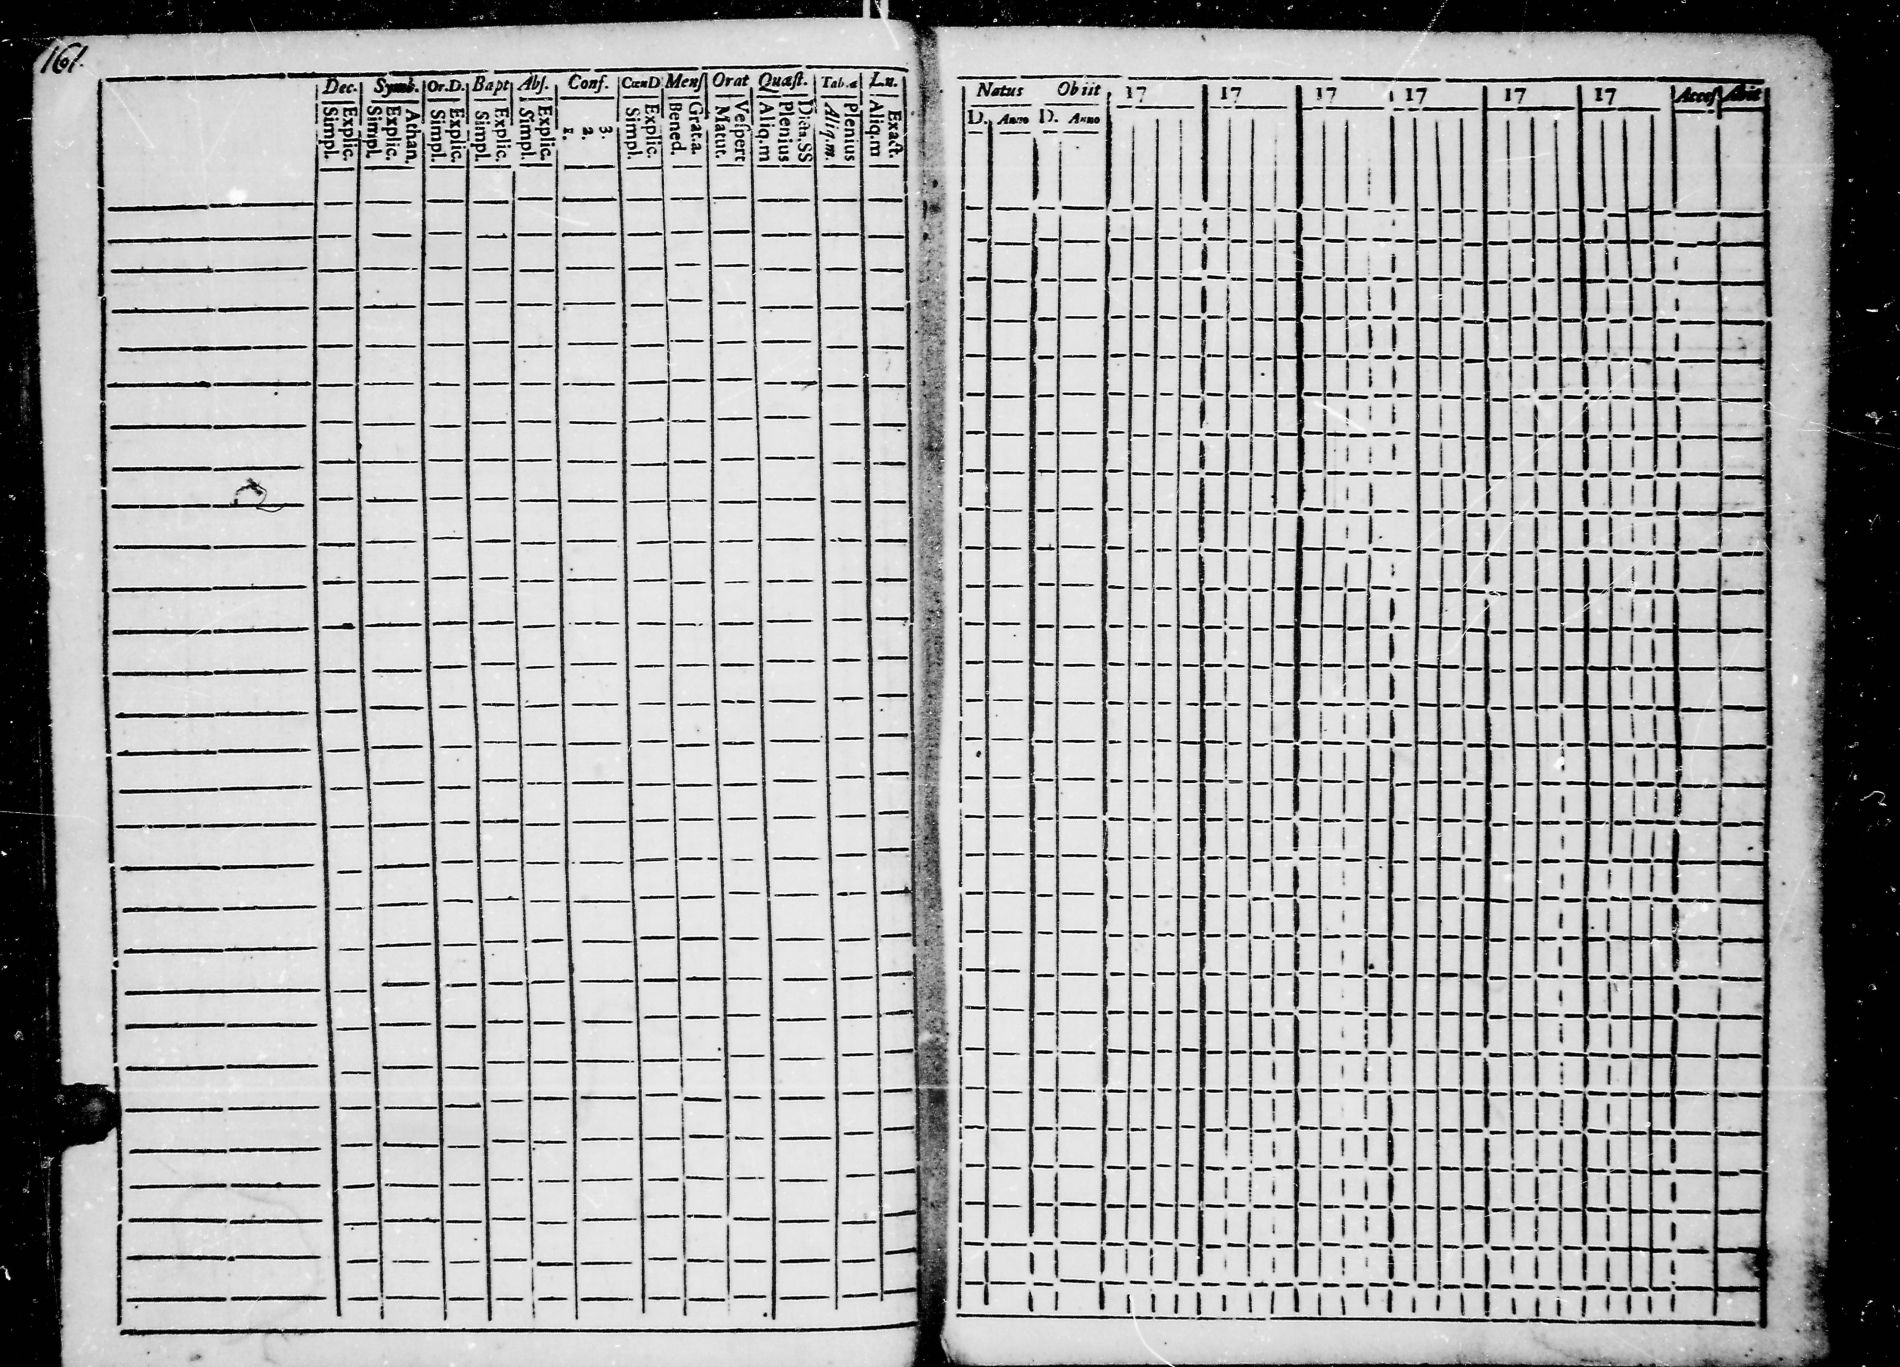 161.
Dec. Symb. Or.D. Bapt Abſ. Conf. CœnD Menſ Orat Quæſt. Tab.æ Lu.
Simpl. Explic. Simpl. Explic. Athan. Simpl. Explic. Simpl. Explic. Simpl. Explic. 1. 2. 3. Simpl. Explic. Bened. Grat.a. Matut. Veſpert Aliq.m Plenius Dicta.SS Aliq.m. Plenius Aliq.m Exact.
Natus Obiit 17 17 17 17 17 17 Acceſ Abit
D. Anno D. Anno